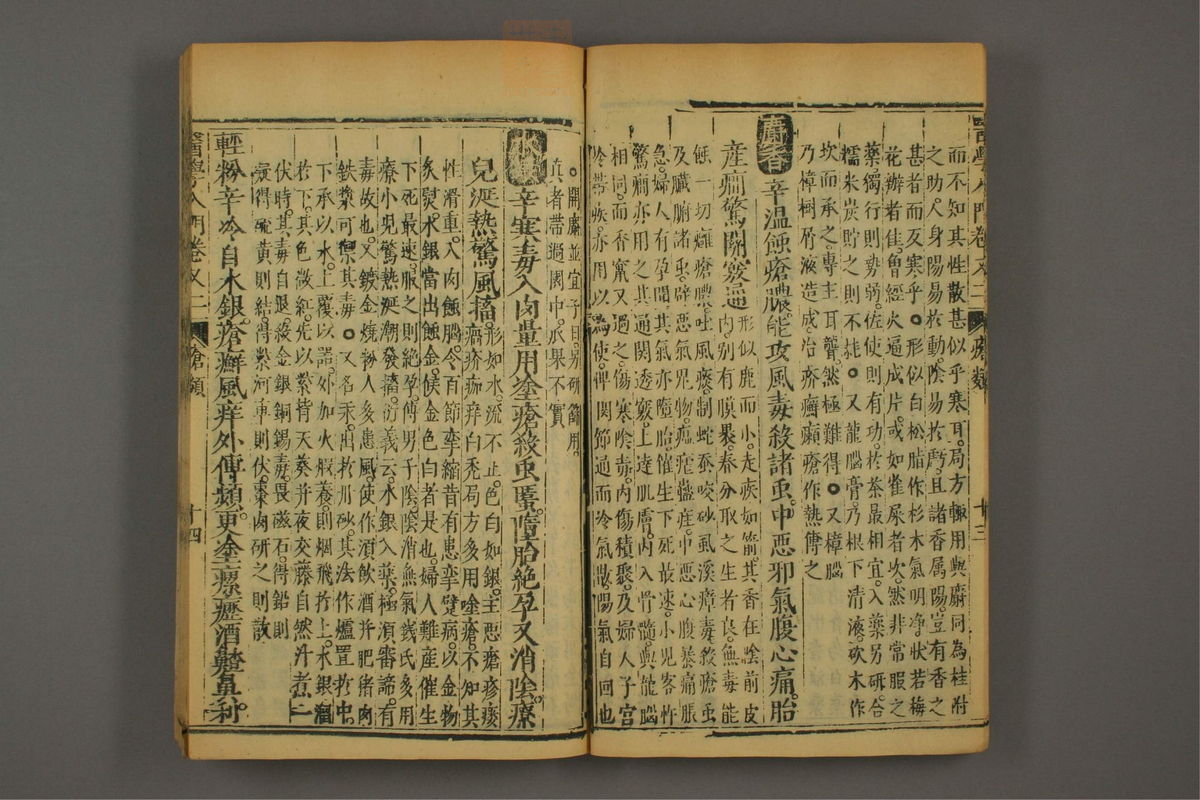 醫學入門卷之二 瘡類 十三
而不知其性散甚似乎寒耳局方輒用與麝同為桂附
之助人身陽易於動陰易於虧且諸香属陽豈有香之
甚者而反寒乎○形似白松脂作杉木氣明淨狀若梅
花瓣者佳魯經火逼成片或如雀屎者次然非常服之
藥獨行則勢弱佐使則有功於茶最相宜入藥另研合
糯米炭貯之則不耗○又龍腦膏乃根下清液砍木作
坎而承之專主耳聾然極難得○又樟腦
乃樟樹屑液造成治疥癬癩瘡作熱傅之
麝香 辛温蝕瘡膿能攻風毒殺諸虫中惡邪氣腹心痛胎
産癎驚關竅通
形似鹿而小走疾如箭其香在陰前皮
内别有膜裹春分取之生者良無毒能
蝕一切癰瘡膿吐風痰制蛇蚕咬砂虱溪瘴毒殺瘡虫
及臟腑諸虫辟惡氣鬼物瘟瘧蠱疰中惡心腹暴痛脹
急婦人有孕聞其氣亦墮胎催生下死最速小児客忤
驚癎亦用之其通關透竅上達肌膚内入骨髓與龍腦
相同而香竄又過之傷寒陰毒内傷積聚及婦人子宮
冷帶疾亦用以為使俾関節通而冷氣散陽氣自回也
○開麝並宜子日另研篩用
真者帶過園中瓜果不實
水銀 辛寒毒入肉量用塗瘡殺虫匿墮胎絶孕又消陰瘰
兒涎熱驚風搐
形如水流不止色白如銀主惡瘡疹瘻
癬疥痂痒白禿局方多用塗瘡不知其
性滑重入肉蝕腦令百節攣縮昔有患攣躄病以金物
炙熨水銀當出蝕金候金色白者是也婦人難産催生
下死最速服之則絶孕傅男子陰陰消無氣錢氏多用
療小兒驚熱涎潮發搐衍義云水銀入藥極須審諦有
毒故也又鍍金燒粉人多患風使作須飲酒并肥猪肉
鉄漿可禦其毒○又名汞出於川砂其法作爐置於中
下承以水上覆以器外加火煅養則烟飛於上水銀溜
於下其色微紅先以紫背天葵并夜交藤自然汁煮一
伏時其毒自退殺金銀銅錫毒畏磁石得鉛則
凝得硫黄則結得紫河車則伏棗肉研之則散
輕粉辛冷自水銀瘡癬風痒外傅頻更塗瘰癧酒齄鼻利
醫學入門卷之二 瘡類 十四